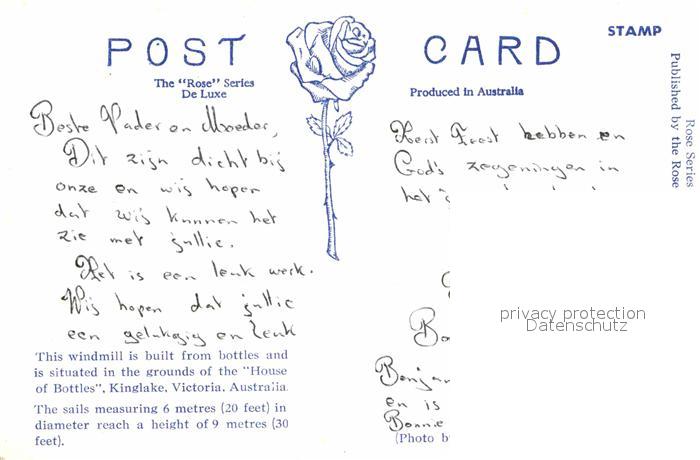 POST CARD
STAMP
The "Rose" Series
De Luxe
Produced in Australia
Beste Vader en Moeder,
Dit zijn dicht bij
onze en wij hopen
dat wij kunnen het
zie met jullie.
Het is een leuk werk.
Wij hopen dat jullie
een gelukgig en leuk
This windmill is built from bottles and
is situated in the grounds of the "House
of Bottles", Kinglake, Victoria, Australia.
The sails measuring 6 metres (20 feet) in
diameter reach a height of 9 metres (30
feet).
Kerst Feest hebben en
God's zegeningen in
het
privacy protection
Datenschutz
en is
Bonnie
(Photo b
Published by the Rose
Rose Series